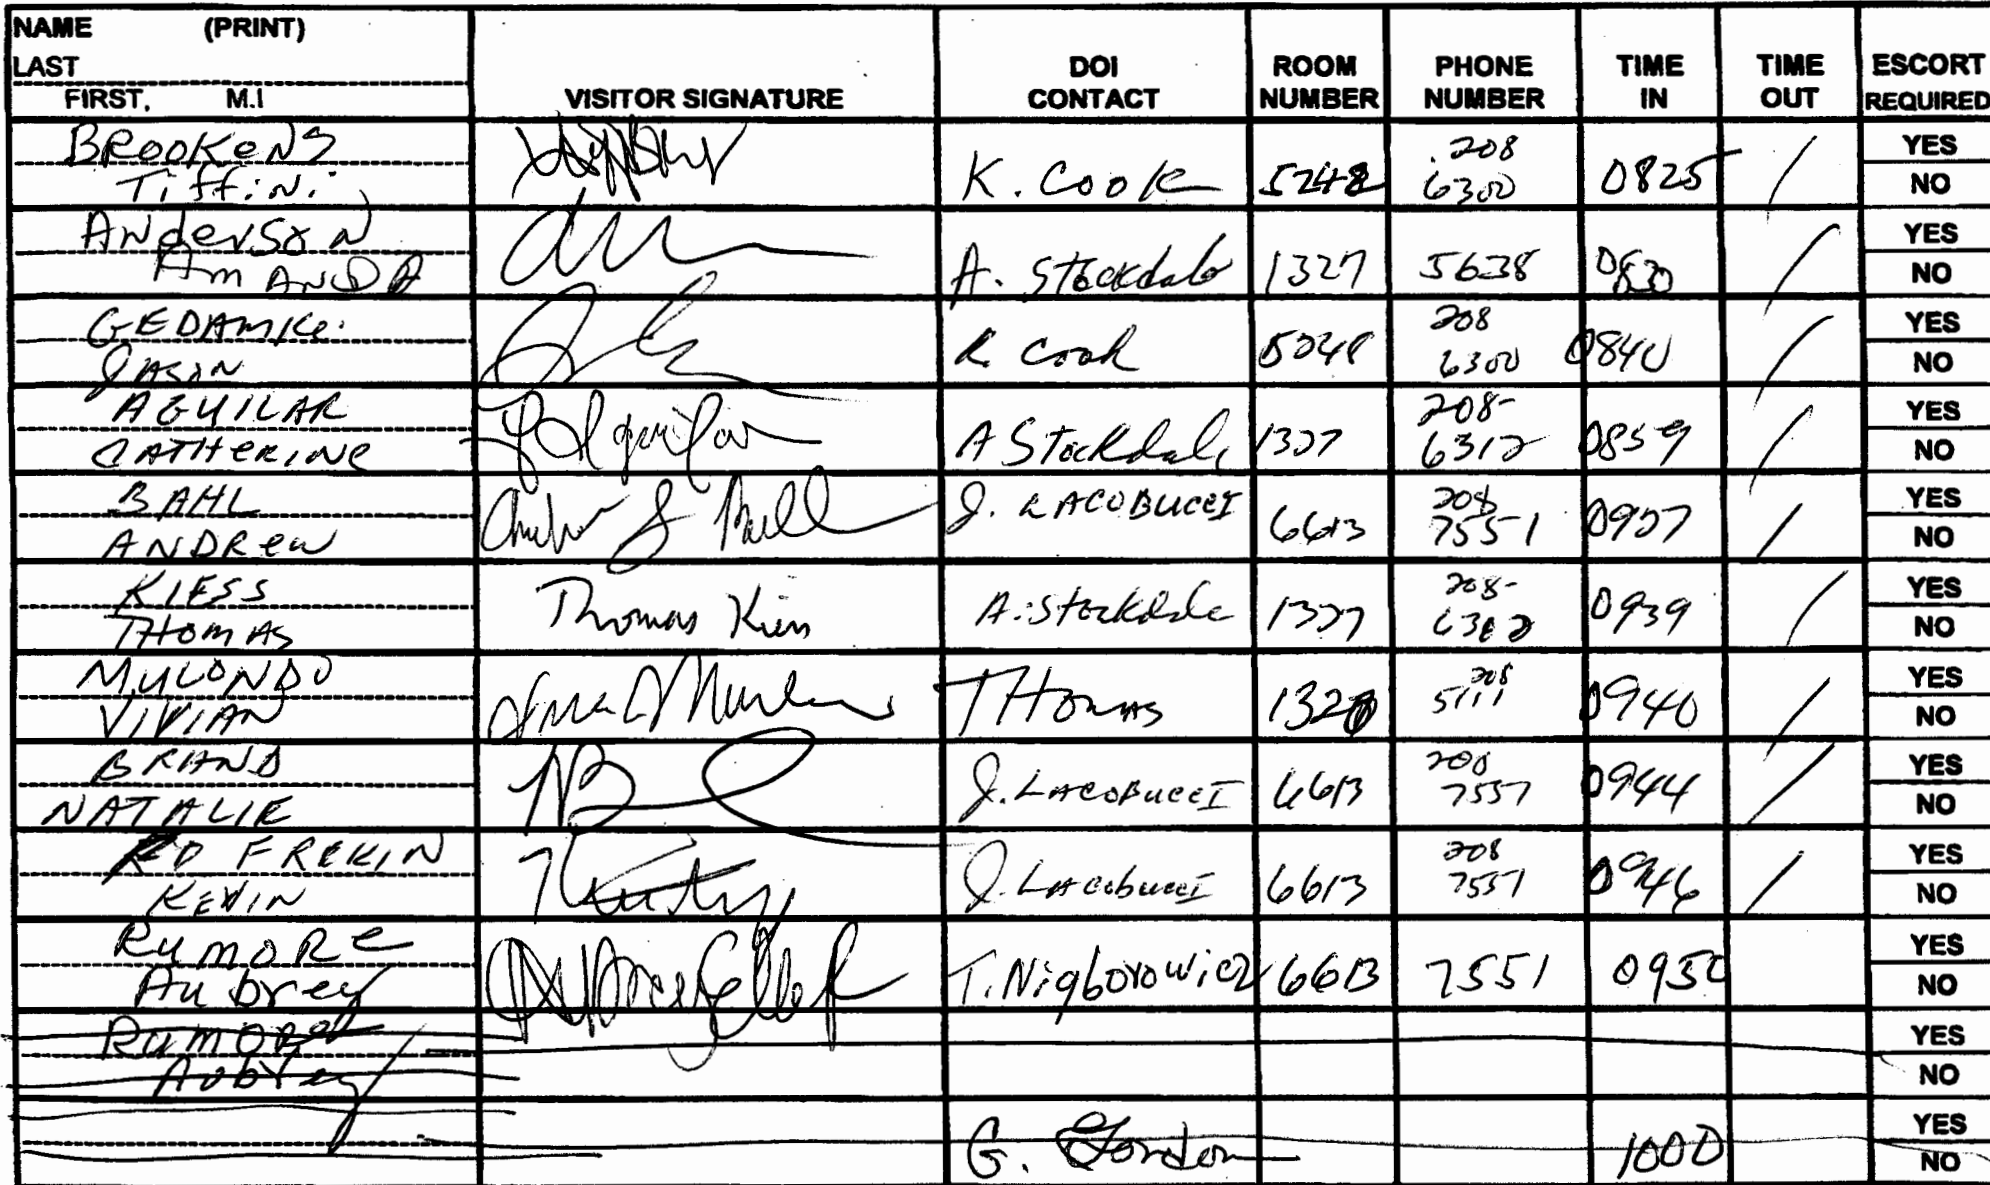 NAME (PRINT)
LAST
FIRST, M.I
VISITOR SIGNATURE
DOI CONTACT
ROOM NUMBER
PHONE NUMBER
TIME IN
TIME OUT
ESCORT REQUIRED
BROOKENS
Tiffini
K. Cook 5248 208 6300 0825 /
YES
NO
Anderson
Amanda
A. Stockdale 1327 5638 0830 /
YES
NO
GEDAMKE
JASON
K. Cook 5248 208 6300 0840 /
YES
NO
AGUILAR
CATHERINE
A Stockdale 1327 208- 6312 0859 /
YES
NO
BAHL
ANDREW
J. LACOBUCCI 6613 208 7551 0927 /
YES
NO
KIESS
THOMAS
Thomas Kiess
A. Stockdale 1327 208- 0939 /
YES
NO
MULONDO
VIVIAN
THOMAS 208 5111 0940 /
YES
NO
BRAND
NATALIE
J. LACOBUCCI 6613 208 7551 0944 /
YES
NO
KEVIN
J. Lacobucci 6613 208 7551 0946 /
YES
NO
RUMORE
Aubrey
T. Nigborowicz 6613 7551 0950
YES
NO
Rumore
Aubrey
YES
NO
G. Gordon 1000
YES
NO